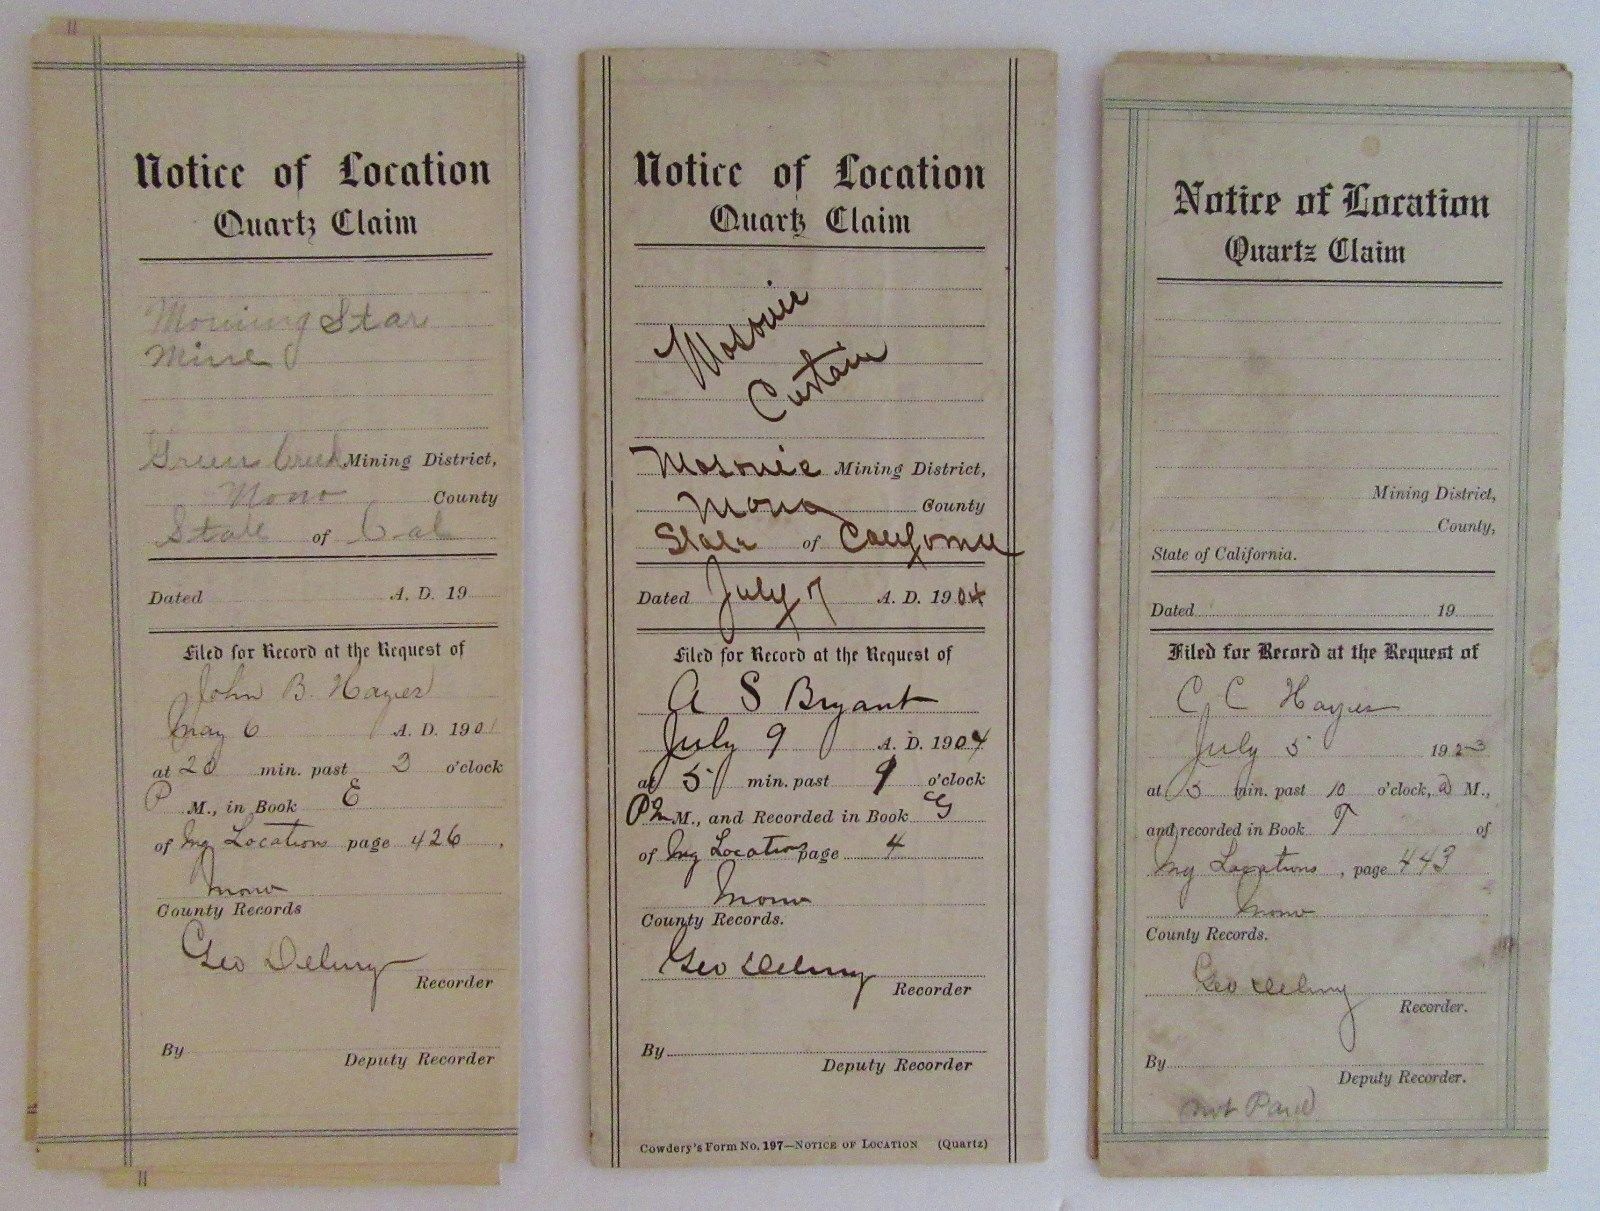 Notice of Location
Quartz Claim
Morning Star
Mine
Green Creek Mining District,
Mono County
State of Cal
Dated A. D. 19
Filed for Record at the Request of
John B. Hayes
May 6 A. D. 1901
at 20 min. past 3 o'clock
P M., in Book E
of Mg Locations page 426,
Mono
County Records
Geo Delury
Recorder
By
Deputy Recorder
Notice of Location
Quartz Claim
Masonic
Curtain
Masonic Mining District,
Mono County
State of California
Dated July 7 A. D. 1904
Filed for Record at the Request of
A S Bryant
July 9 A. D. 1904
at 5 min. past 9 o'clock
M., and Recorded in Book G
of Mg Locations page 4
Mono
County Records.
Geo Delury
Recorder
By
Deputy Recorder
Cowdery's Form No. 197—Notice of Location (Quartz)
Notice of Location
Quartz Claim
Mining District,
County,
State of California.
Dated 19
Filed for Record at the Request of
C C Hayes
July 5 1923
at 5 min. past 10 o'clock, a M.,
and recorded in Book T of
Mg Locations, page 443
Mono
County Records.
Geo Delury
Recorder.
By
Deputy Recorder.
Not Paid